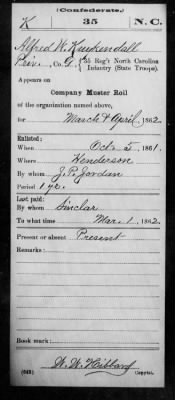 (Confederate.)
K 35 N.C.
Alfred W. Kuykendall
Priv., Co. G, 35 Reg't North Carolina
Infantry (State Troops).
Appears on
Company Muster Roll
of the organization named above,
for March & April, 1862.
Enlisted:
When Oct. 5, 1861.
Where Henderson
By whom J. P. Jordan
Period 1 yr.
Last paid:
By whom Sinclar
To what time Mar. 1, 1862.
Present or absent Present
Remarks:
Book mark:
W. W. Hibbard
(642) Copyist.